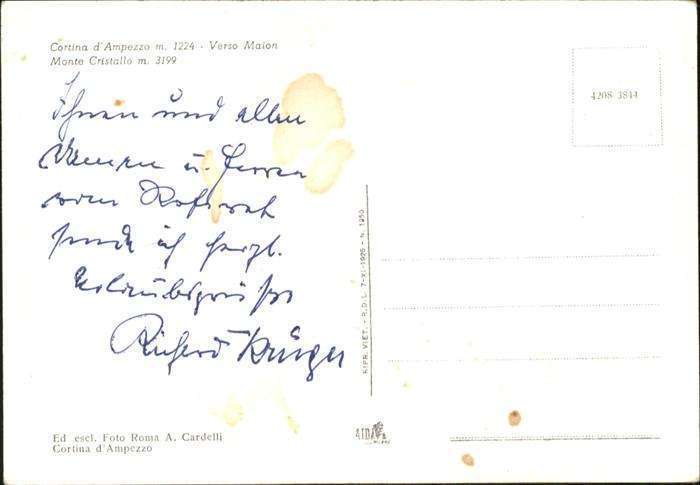 Cortina d'Ampezzo m. 1224 - Verso Maion
Monte Cristallo m. 3199
4208 3844
Ihnen und allen
Damen u. Herren
vom Referat
sende ich herzl.
Urlaubsgrüße
Richard Krüger
RIPR. VIET. - R.D.L. 7-XI-1925 - N. 1950
Ed escl. Foto Roma A. Cardelli
Cortina d'Ampezzo